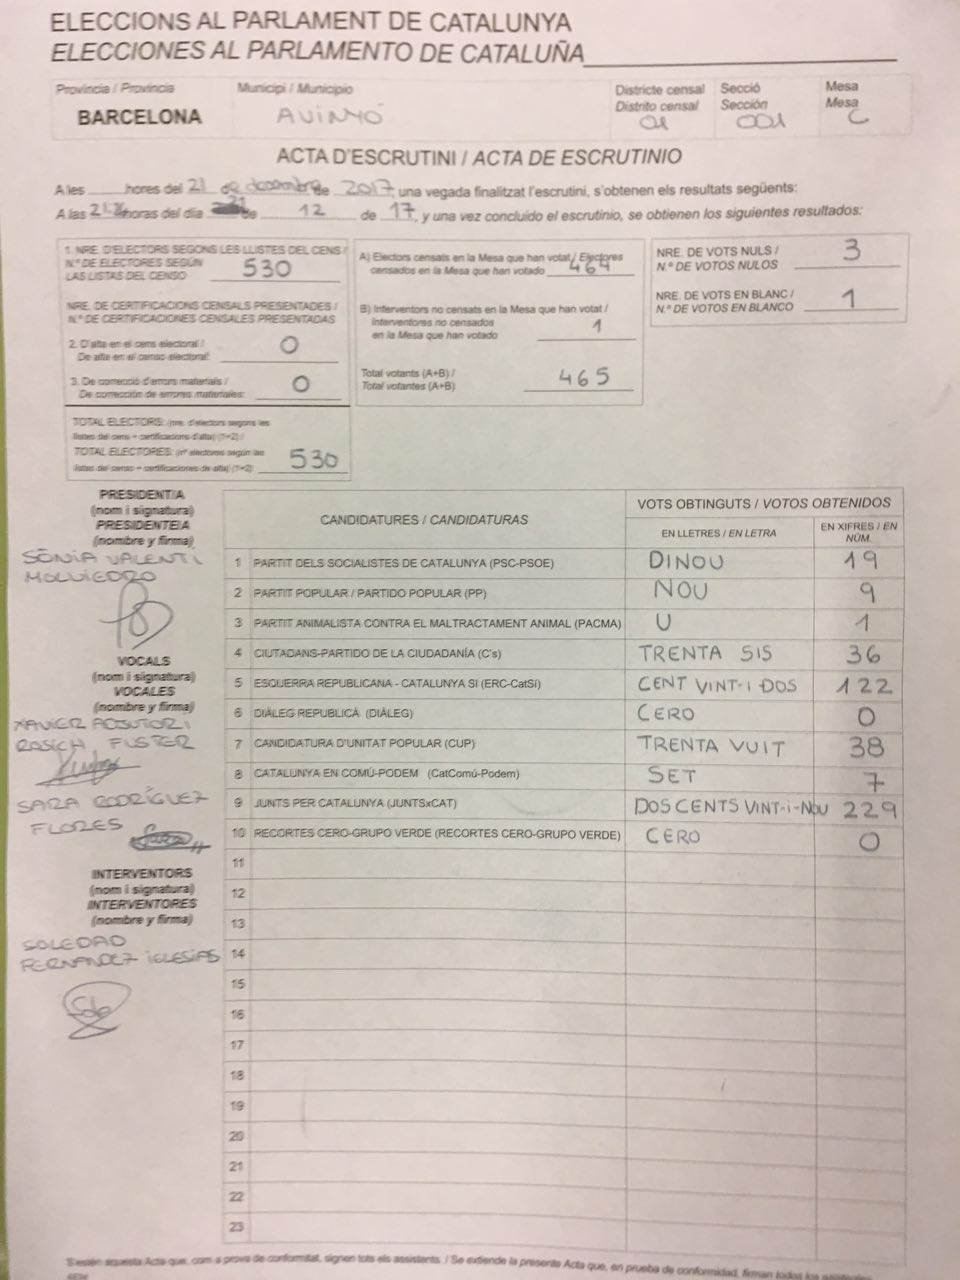 ELECCIONS AL PARLAMENT DE CATALUNYA
ELECCIONES AL PARLAMENTO DE CATALUÑA
Provincia / Provincia
BARCELONA
Municipi / Municipio
AVINYÓ
Districte censal
Distrito censal
01
Secció
Sección
001
Mesa
Mesa
C
ACTA D'ESCRUTINI / ACTA DE ESCRUTINIO
A les hores del 21 de desembre de 2017, una vegada finalitzat l'escrutini, s'obtenen els resultats següents:
A las horas del día 21 de 12 de 17, y una vez concluido el escrutinio, se obtienen los siguientes resultados:
1. NRE. D'ELECTORS SEGONS LES LLISTES DEL CENS /
N.º DE ELECTORES SEGÚN
LAS LISTAS DEL CENSO 530
NRE. DE CERTIFICACIONS CENSALS PRESENTADES /
N.º DE CERTIFICACIONES CENSALES PRESENTADAS
2. D'alta en el cens electoral /
De alta en el censo electoral: 0
3. De correcció d'errors materials /
De corrección de errores materiales: 0
TOTAL ELECTORS: (nre. d'electors segons les
llistes del cens + certificacions d'alta) (1+2) /
TOTAL ELECTORES: (nº electores según las
listas del censo + certificaciones de alta) (1+2) 530
A) Electors censats en la Mesa que han votat / Electores
censados en la Mesa que han votado 464
B) Interventors no censats en la Mesa que han votat /
Interventores no censados
en la Mesa que han votado 1
Total votants (A+B) /
Total votantes (A+B) 465
NRE. DE VOTS NULS /
N.º DE VOTOS NULOS 3
NRE. DE VOTS EN BLANC /
N.º DE VOTOS EN BLANCO 1
PRESIDENT/A
(nom i signatura)
PRESIDENTE/A
(nombre y firma)
SÒNIA VALENTI
VOCALS
(nom i signatura)
VOCALES
(nombre y firma)
XAVIER ADJUTORI
ROSICH FUSTER
SARA RODRÍGUEZ
FLORES
INTERVENTORS
(nom i signatura)
INTERVENTORES
(nombre y firma)
SOLEDAD
FERNANDEZ IGLESIAS
CANDIDATURES / CANDIDATURAS
VOTS OBTINGUTS / VOTOS OBTENIDOS
EN LLETRES / EN LETRA
EN XIFRES / EN
NÚM.
1 PARTIT DELS SOCIALISTES DE CATALUNYA (PSC-PSOE) DINOU 19
2 PARTIT POPULAR / PARTIDO POPULAR (PP) NOU 9
3 PARTIT ANIMALISTA CONTRA EL MALTRACTAMENT ANIMAL (PACMA) U 1
4 CIUTADANS-PARTIDO DE LA CIUDADANÍA (C's) TRENTA SIS 36
5 ESQUERRA REPUBLICANA - CATALUNYA SÍ (ERC-CatSí) CENT VINT-I DOS 122
6 DIÀLEG REPUBLICÀ (DIÀLEG) CERO 0
7 CANDIDATURA D'UNITAT POPULAR (CUP) TRENTA VUIT 38
8 CATALUNYA EN COMÚ-PODEM (CatComú-Podem) SET 7
9 JUNTS PER CATALUNYA (JUNTSxCAT) DOS CENTS VINT-i-NOU 229
10 RECORTES CERO-GRUPO VERDE (RECORTES CERO-GRUPO VERDE) CERO 0
11
12
13
14
15
16
17
18
19
20
21
22
23
S'estén aquesta Acta que, com a prova de conformitat, signen tots els assistents. / Se extiende la presente Acta que, en prueba de conformidad, firman todos los